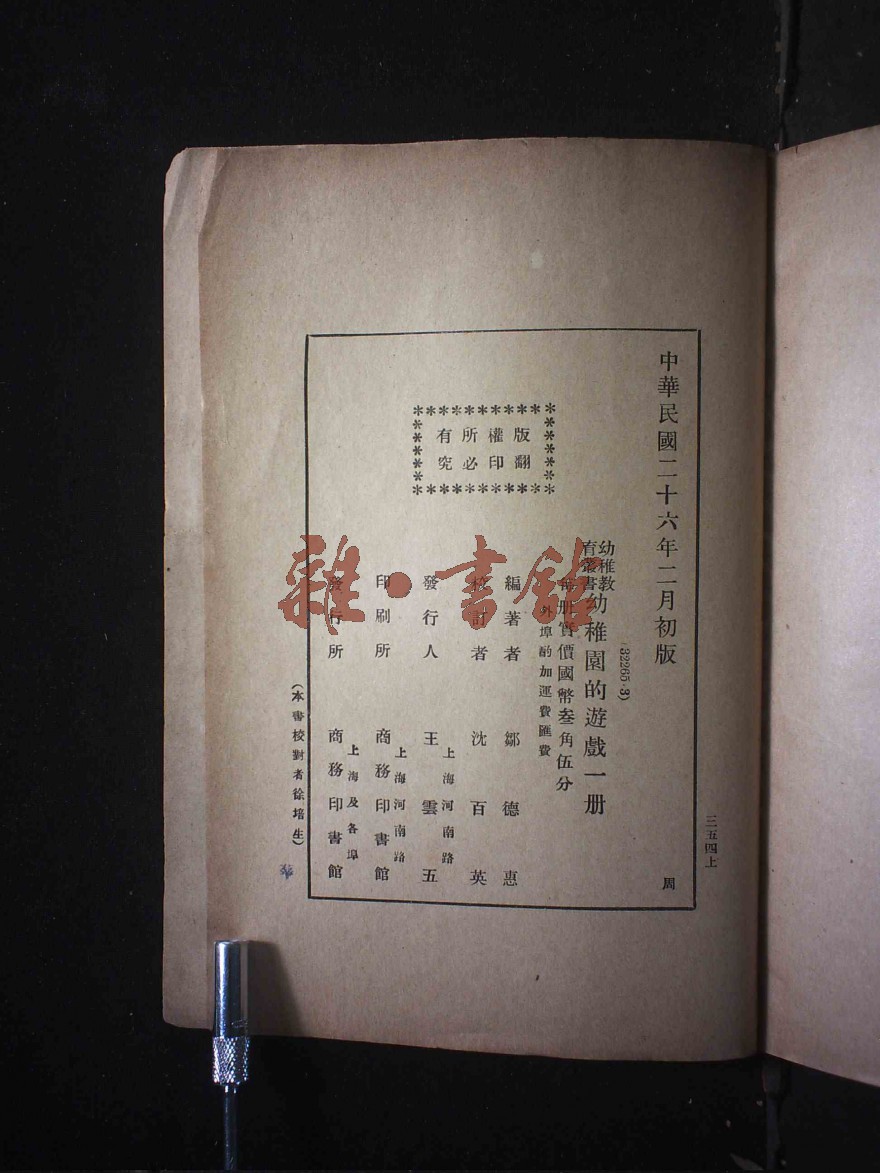 中華民國二十六年二月初版
周
三五四上
(32265·3)
幼稚教
育叢書
幼稚園的遊戲一册
每册實價國幣叁角伍分
外埠酌加運費匯費
版權所有
翻印必究
編著者 鄒德惠
校訂者 沈百英
上海河南路
發行人 王雲五
上海河南路
印刷所 商務印書館
上海及各埠
發行所 商務印書館
(本書校對者徐培生)
雜·書館